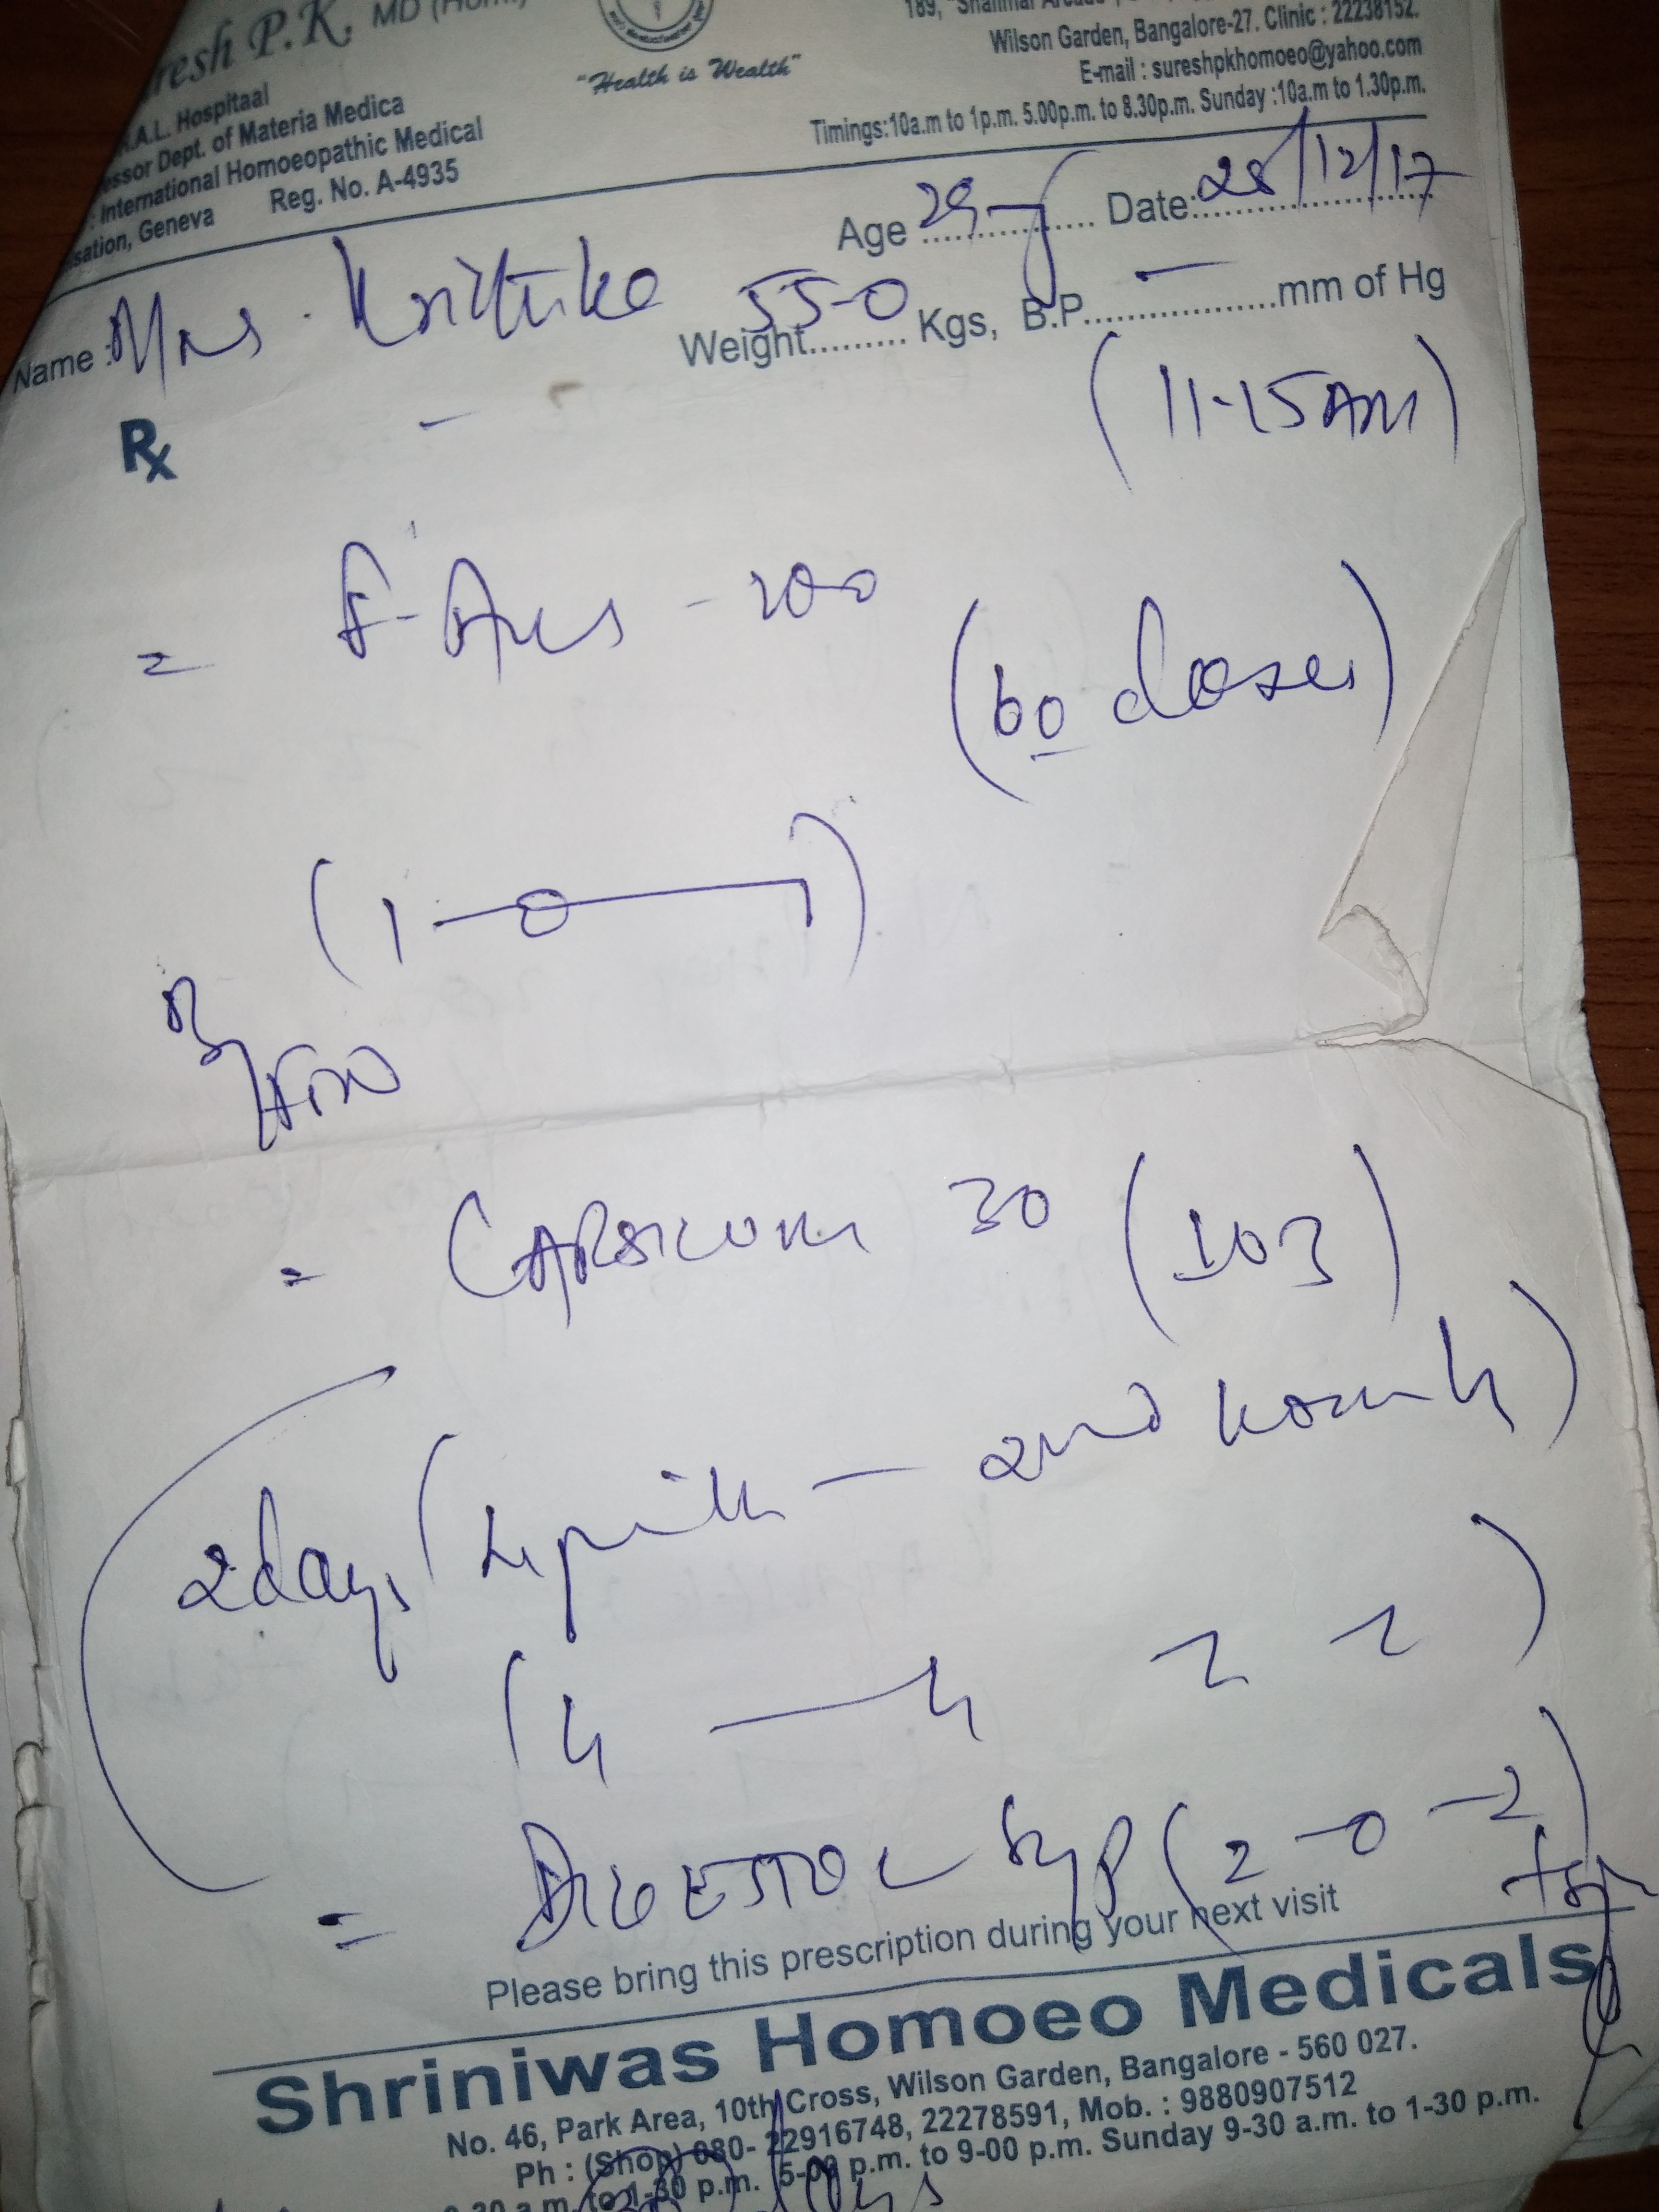 resh P.K, MD (Hom.)
.A.L. Hospitaal
essor Dept. of Materia Medica
: International Homoeopathic Medical
sation, Geneva Reg. No. A-4935
"Health is Wealth"
189, "Shalimar Arcade",
Wilson Garden, Bangalore-27. Clinic : 22238152.
E-mail : sureshpkhomoeo@yahoo.com
Timings:10a.m to 1p.m. 5.00p.m. to 8.30p.m. Sunday :10a.m to 1.30p.m.
Age 29 Date: 28/12/17
Name : Mrs. Krithika Weight 55-0 Kgs, B.P. - mm of Hg
Rx (11-15AM)
= - 200
(60 doses)
(1-0-1)
= CAPSICUM 30 (103)
2days (4 pills - 2nd hourly)
(4 - 4
= Syp (2-0-2) tsp
Please bring this prescription during your next visit
Shriniwas Homoeo Medicals
No. 46, Park Area, 10th Cross, Wilson Garden, Bangalore - 560 027.
Ph : (Shop) 080- 22916748, 22278591, Mob. : 9880907512
9.30 a.m. to 1-30 p.m. 5-00 p.m. to 9-00 p.m. Sunday 9-30 a.m. to 1-30 p.m.
days